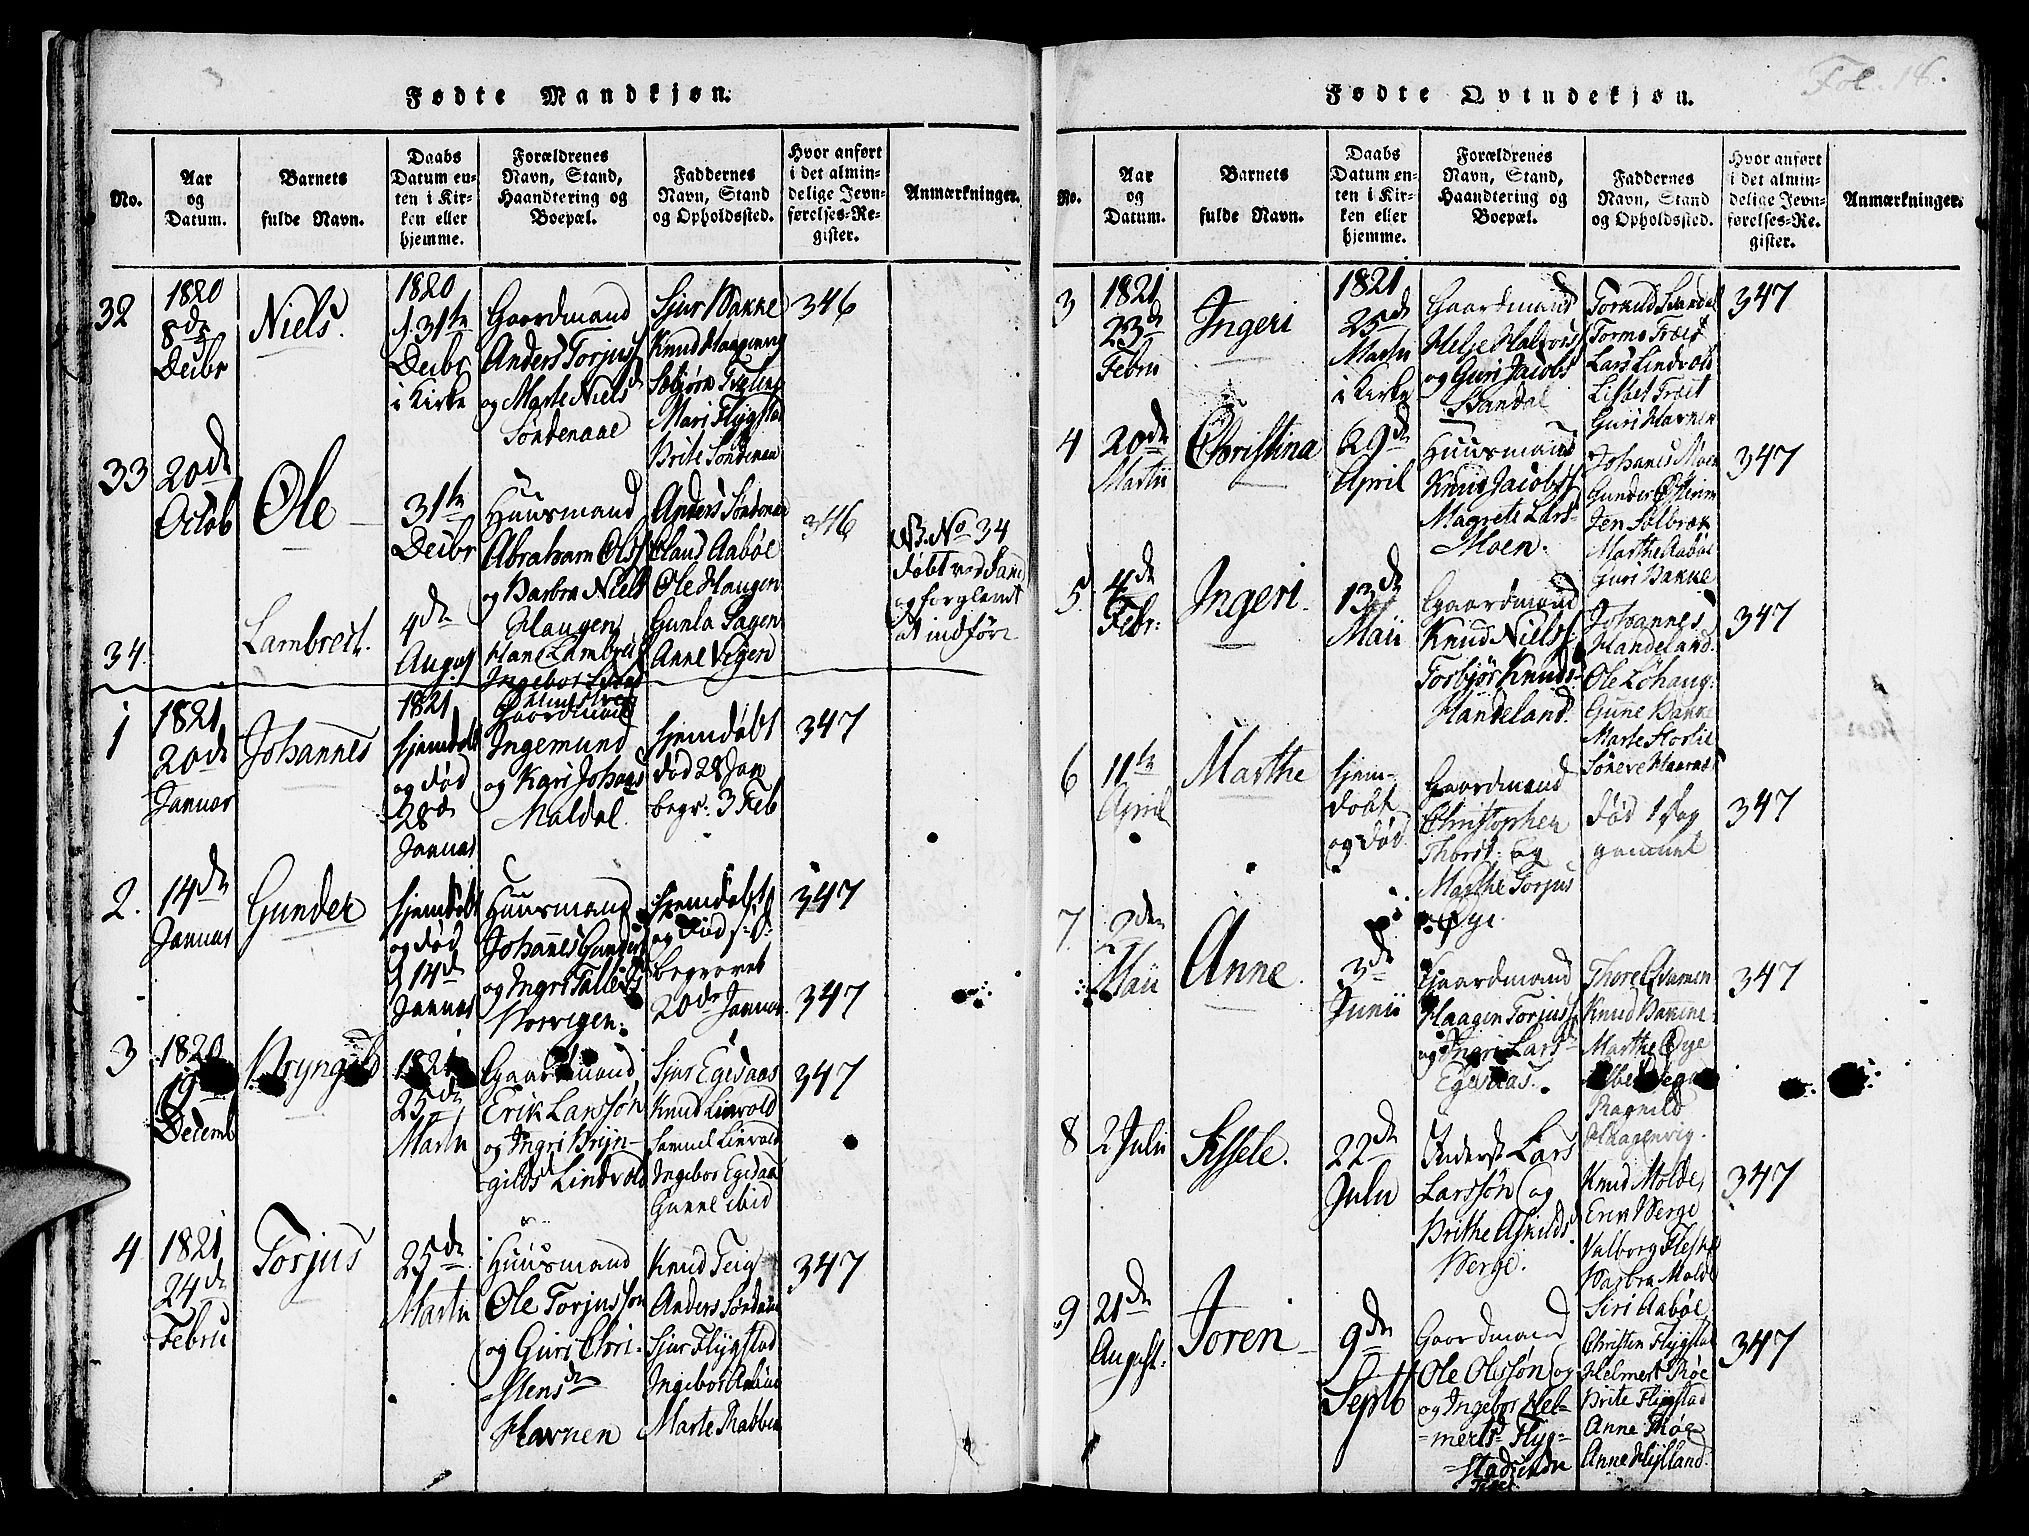 Fødte Mandkjøn.
No.
Aar
og
Datum.
Barnets
fulde Navn.
Daabs
Datum en-
ten i Kir-
ken eller
hjemme.
Forældrenes
Navn, Stand,
Haandtering og
Boepæl.
Faddernes
Navn, Stand
og Opholdssted.
Hvor anført
i det almin-
delige Jevn-
førelses-Re-
gister.
Anmærkninger.
32
1820
8de
Decbr
Niels.
1820
31te
Decbr
i Kirke
Gaardmand
Anders Torjuss
og Marte Niels
Søndenaae
Sjur Bakke
Knud Haagenvig
Mari Flygstad
Brite Søndenaa
346
33
20de
Octob
Ole
31te
Decbr
Huusmand
Abraham Olss
og Barbra Niels
Haugen
Anders Søndenaa
Claus Aabøe
Ole Haugen
Gunla Sagen
Anne Vegere
346
34
Lambrect.
4de
August
Hans Lambres
NB. No 34
døbt ved
og forglemt
at indføre
1
1821
20de
Januar
Johannes
1821
hjemdøbt
og død
28de
Januar
Gaardmand
Ingemund
og Kari Johans
Maldal.
hjemdøbt
død 28 Jan
begr: 3 Feb
347
2.
14de
Januar
Gunder
hjemdøbt
og død
d 14de
Januar
Huusmand
Johannes Gunders
og Ingri
Norvigen.
hjemdøbt
og død
begravet
20de Januar
347
3
1820
19de
Decemb
Bryngild
1821
25de
Martii
Gaardmand
Erik Larssøn
og Ingri Brÿn-
gilds Lindvold
Sjur Egesaas
Knud Linvold
Samuel Linvold
Ingebor Egesaa
Gunne ibid
347
347
4
1821
24de
Febru
Torjus
25de
Martii
Huusmand
Ole Torjussøn
og Guri Chri-
stens
Havnen
Knud Teig
Anders Søndenaa
Sjur Flÿgstad
Ingebor
Marte Rabben
347
Fødte Qvindekjøn.
Fol. 18.
No.
Aar
og
Datum.
Barnets
fulde Navn.
Daabs
Datum en-
ten i Kir-
ken eller
hjemme.
Forældrenes
Navn, Stand,
Haandtering og
Boepæl.
Faddernes
Navn, Stand
og Opholdssted.
Hvor anført
i det almin-
delige Jevn-
førelses-Re-
gister.
Anmærkninger.
3
1821
23de
Febru
Ingeri
1821
25de
Martii
i Kirke
Gaardmand
Helje Halvorss
og Guri Jacobs
Sandal
Torkild Sandal
Tormo Træet
Lars Lindvold
Lisbet Træet
Guri Havnen
347
4
20de
Martii
Christina
29de
April
Huusmand
Knud Jacobss
Magrete Lars-
Moen.
Johanes Moen
Gunder
Jen Solbræk
Marthe Aabøe
Guri Bakke
347
5
4de
Febr:
Ingeri.
13de
Maii
Gaardmand
Knud Nielss
Torbjør Knuds-
Handeland.
Johannes
Handeland.
Ole Løhaug:
Gunne Bakke
Marte Horlie
347
6
11te
April
Marthe
hjem-
døbt
og død
Gaardmand
Christopher
Thorst: og
Marthe Torjus
Øye.
død 1 dag
gammel
347
7
2den
Maii
Anne
3de
Junii
Gaardmand
Haagen Torjuss
og Ingri Lars
Egesaas.
Thore Qvamen
Knud Bakkene
Marthe Øye
Ragnild
Haagenvig.
347
8
2 Julii
Sissele.
22de
Julii
Inderst Lars
Larssøn og
Brithe Askilds
Berge.
Knud Molde,
Erik Berge
Valborg
Barbra Molde
Siri Aabøe
347
9
21de
August:
Joren
9de
Septb
Gaardmand
Ole Olssøn og
og Ingebor Hel-
merts Flÿg-
Christen Flÿgstad
Helmert Røe
Brite Flÿgstad
Anne Røe
Anne Hÿlland.
347